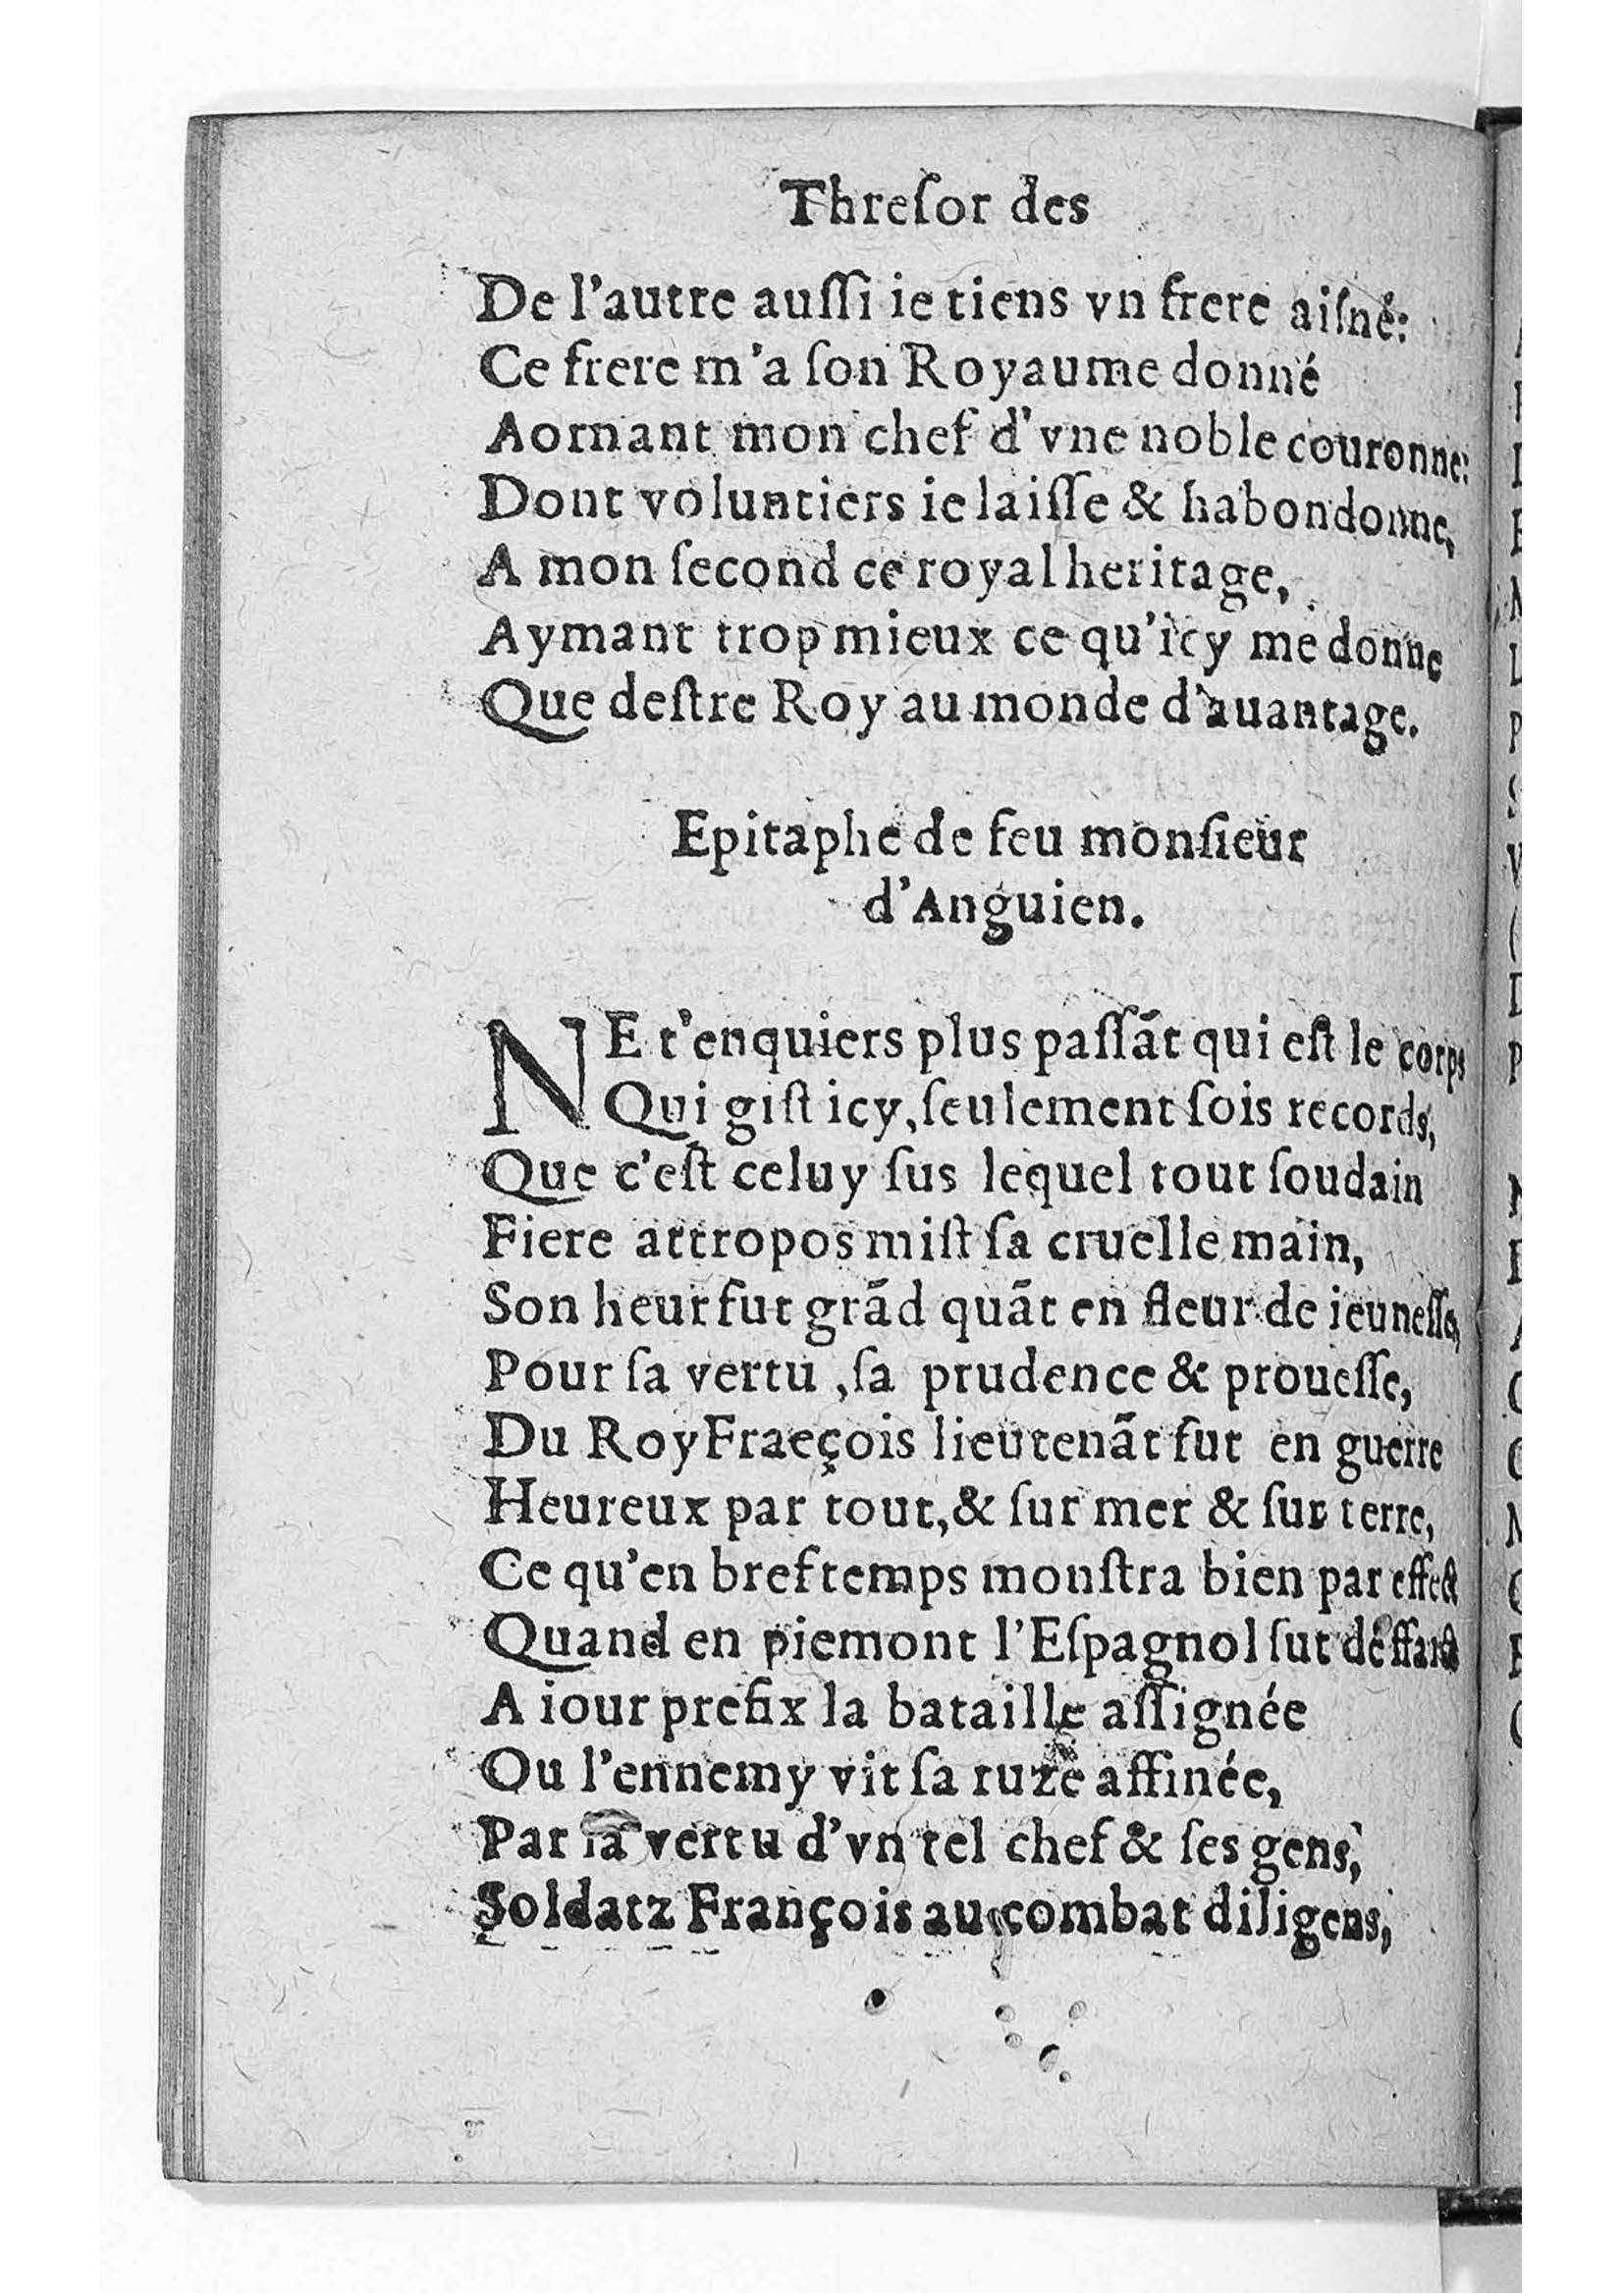 Threſor des
De l'autre auſſi ie tiens vn frere aiſné:
Ce frere m'a ſon Royaume donné
Aornant mon chef d'vne noble couronne:
Dont voluntiers ie laiſſe & habondonne,
A mon ſecond ce royal heritage,
Aymant trop mieux ce qu'icy me donne
Que deſtre Roy au monde d'auantage.
Epitaphe de feu monſieur
d'Anguien.
NE t'enquiers plus paſſãt qui eſt le corps
Qui giſt icy, ſeulement ſois records,
Que c'eſt celuy ſus lequel tout ſoudain
Fiere attropos miſt ſa cruelle main,
Son heur fut grãd quãt en fleur de ieuneſſe,
Pour ſa vertu, ſa prudence & proueſſe,
Du Roy Fraeçois lieutenãt fut en guerre
Heureux par tout, & ſur mer & ſur terre,
Ce qu'en bref temps monſtra bien par effect
Quand en piemont l'Eſpagnol fut deffaict
A iour prefix la bataille aſſignée
Ou l'ennemy vit ſa ruze affinée,
Par la vertu d'vn tel chef & ſes gens,
Soldatz François au combat diligens,